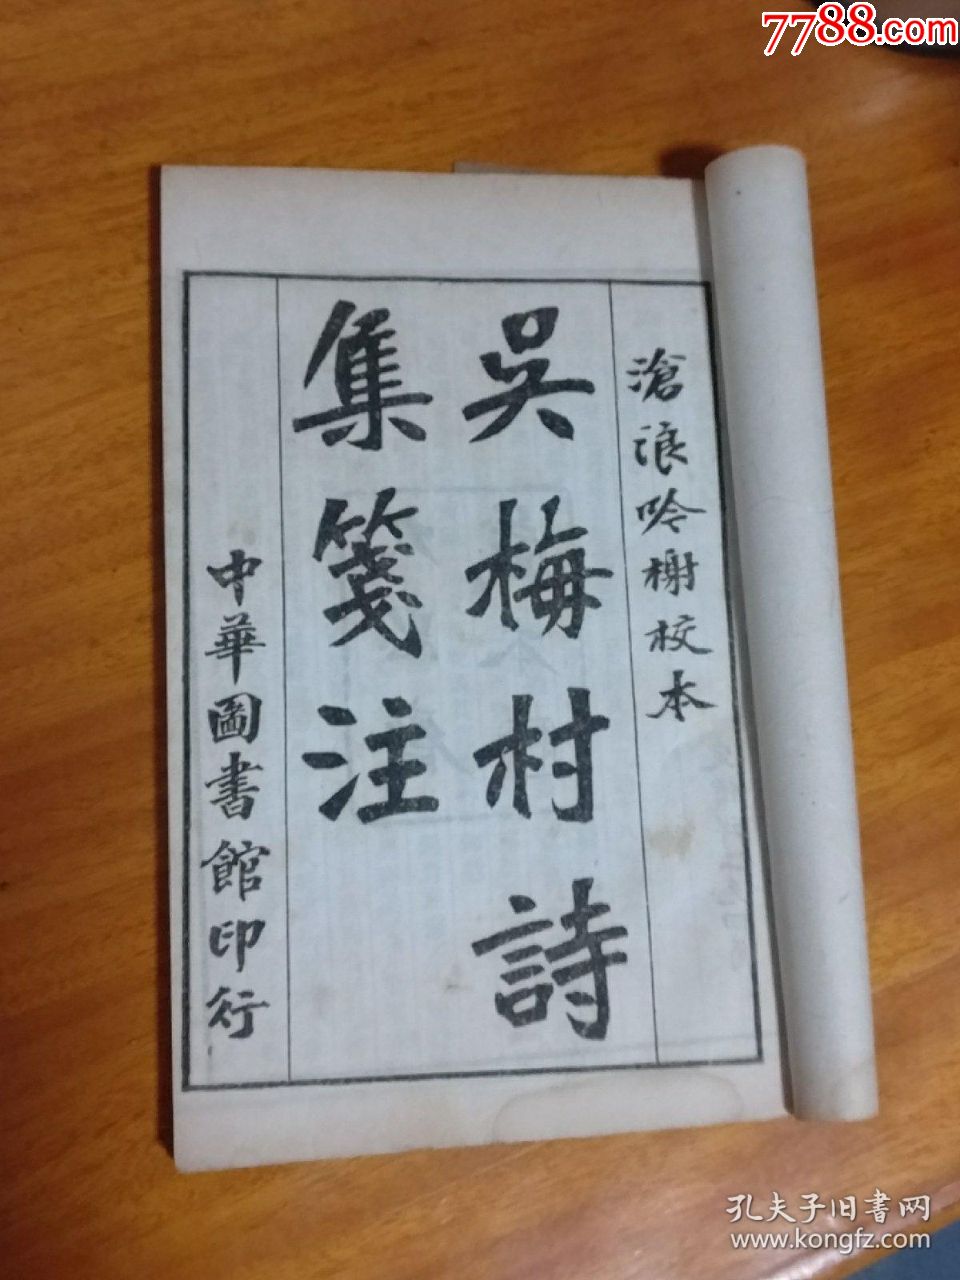 7788.com
滄浪吟榭校本
吳梅村詩
集箋注
中華圖書館印行
孔夫子旧書网
www.kongfz.com